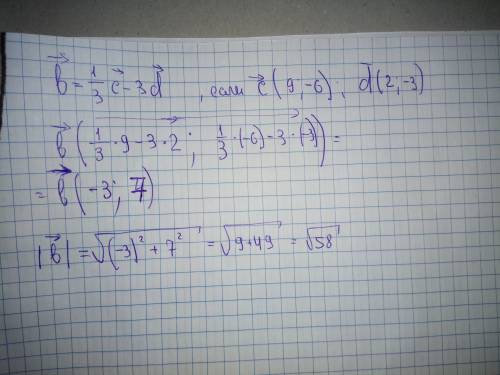 b⃗ = 1/3 c⃗ - 3d⃗ , если c⃗ (9; -6); d⃗ (2; -3)
b⃗ (1/3 · 9 - 3 · 2; 1/3 · (-6) - 3 · (-3)) =
= b⃗ (-3; 7)
|b⃗| = √((-3)² + 7²) = √(9+49) = √58